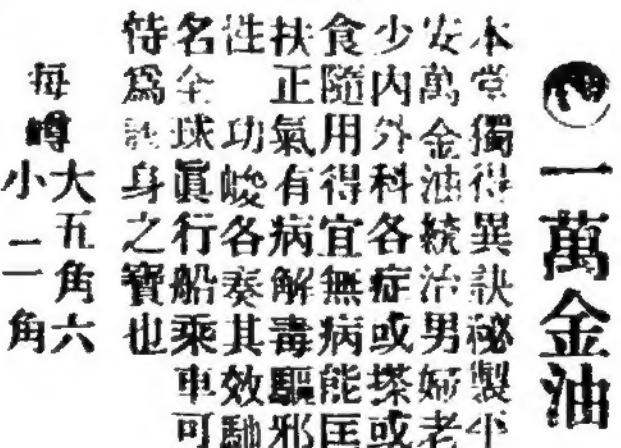 一萬金油
本堂獨得異訣秘製平
安萬金油統治男婦老
少內外科各症或搽或
食隨用得宜無病能匡
扶正氣有病解毒驅邪
性功峻各奏其效馳
名全球眞行船乘車可
爲身之寶也
每罇
大五角六
小二角